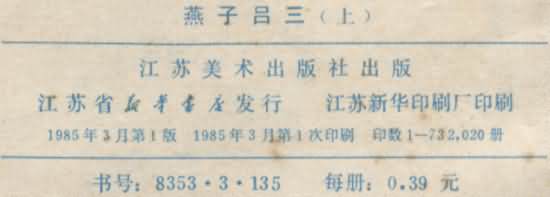 燕子吕三（上）
江苏美术出版社出版
江苏省新华书店发行 江苏新华印刷厂印刷
1985年3月第1版 1985年3月第1次印刷 印数1—732,020册
书号：8353·3·135 每册：0.39元